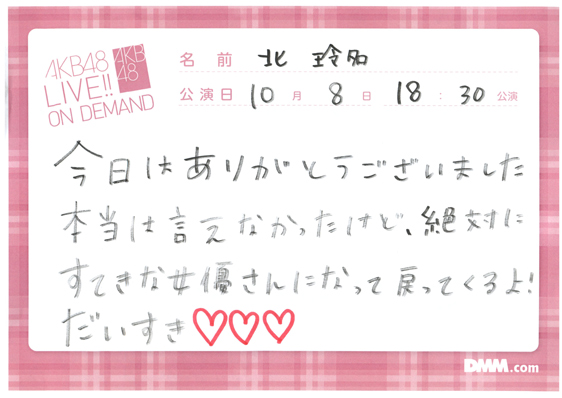 AKB48
LIVE!!
ON DEMAND
AKB
48
名前 北 玲名
公演日 10月 8日 18:30公演
今日はありがとうございました
本当は言えなかったけど、絶対に
すてきな女優さんになって戻ってくるよ!
だいすき♡♡♡
DMM.com